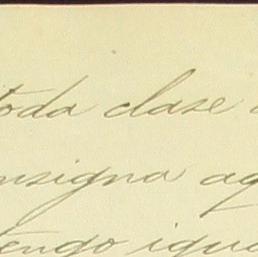 toda clase
nsigna aq
tengo igua